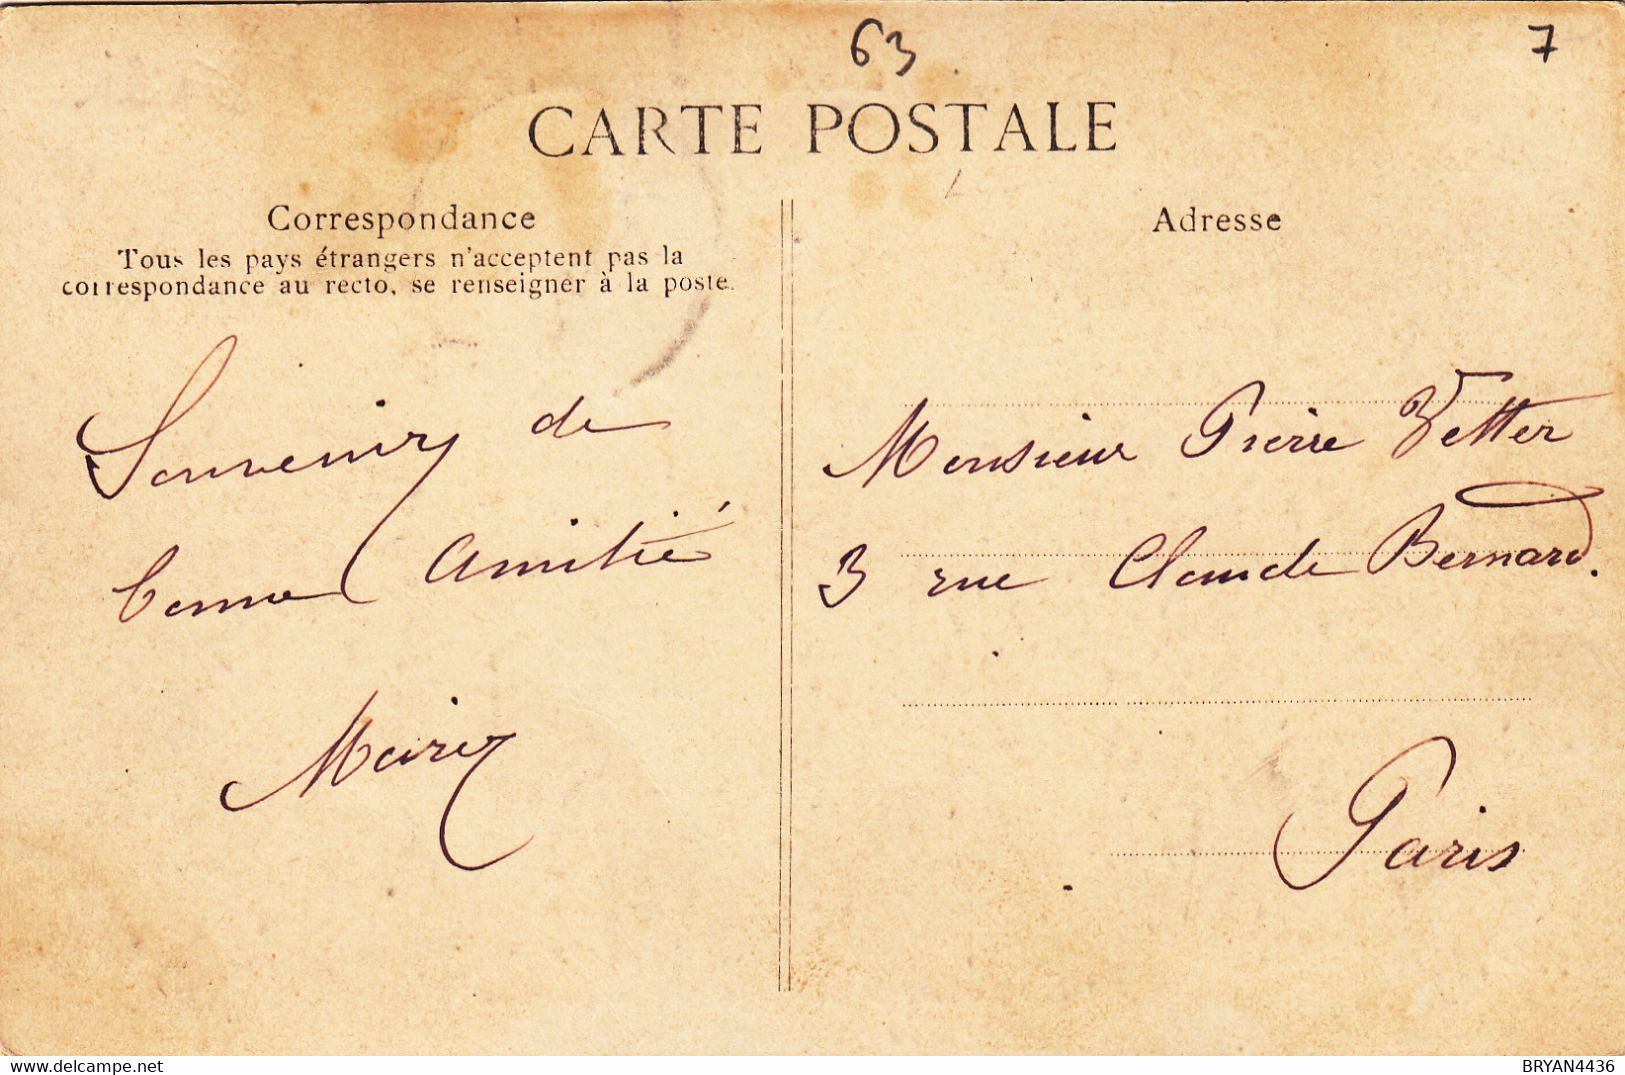 63
7
CARTE POSTALE
Correspondance
Tous les pays étrangers n'acceptent pas la
correspondance au recto, se renseigner à la poste.
Souvenir de
bonne amitié
Adresse
Monsieur Pierre Vetter
3 rue Claude Bernard.
Paris
delcampe.net
BRYAN4436